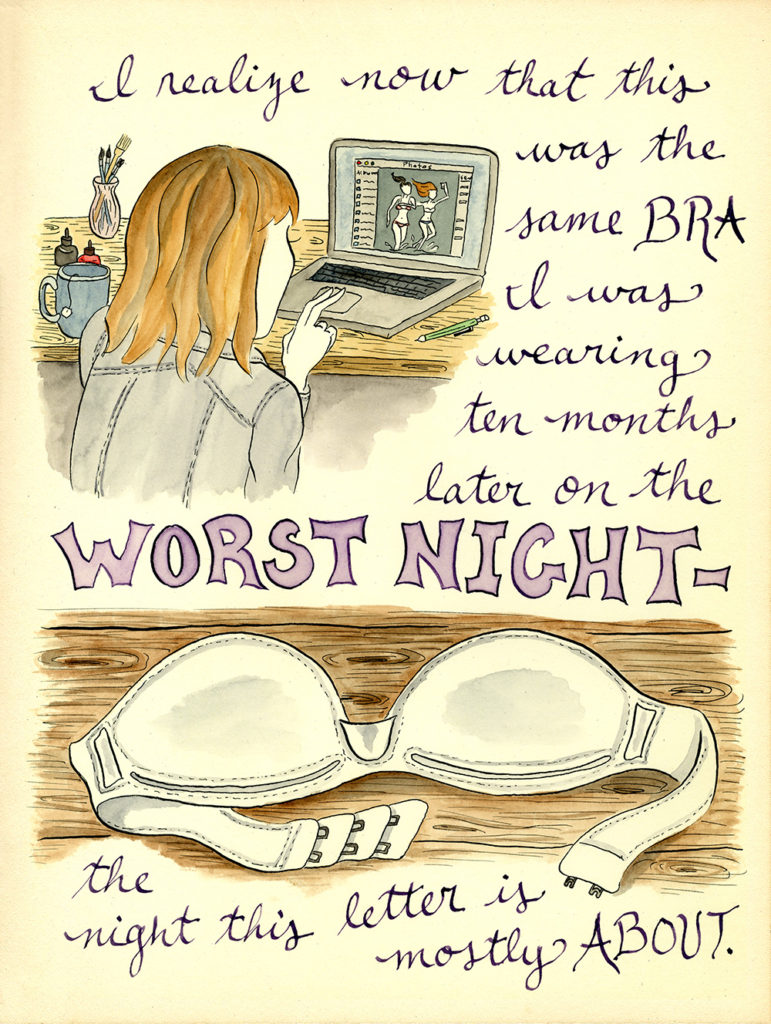 I realize now that this
was the
same BRA
I was
wearing
ten months
later on the
WORST NIGHT-
the
night this letter is
mostly ABOUT.
Photos